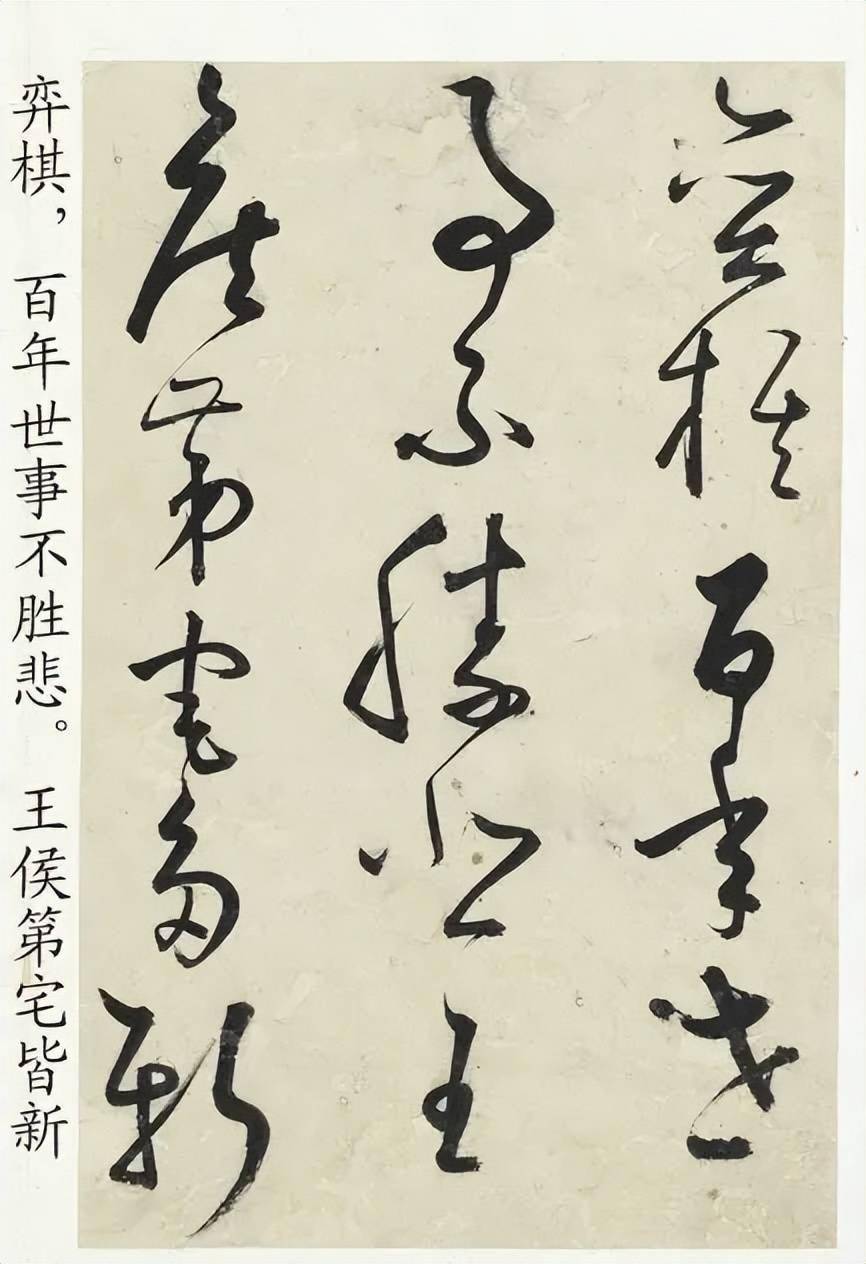 弈棋百年世
事不勝悲王
侯第宅多新
弈棋，百年世事不胜悲。王侯第宅皆新